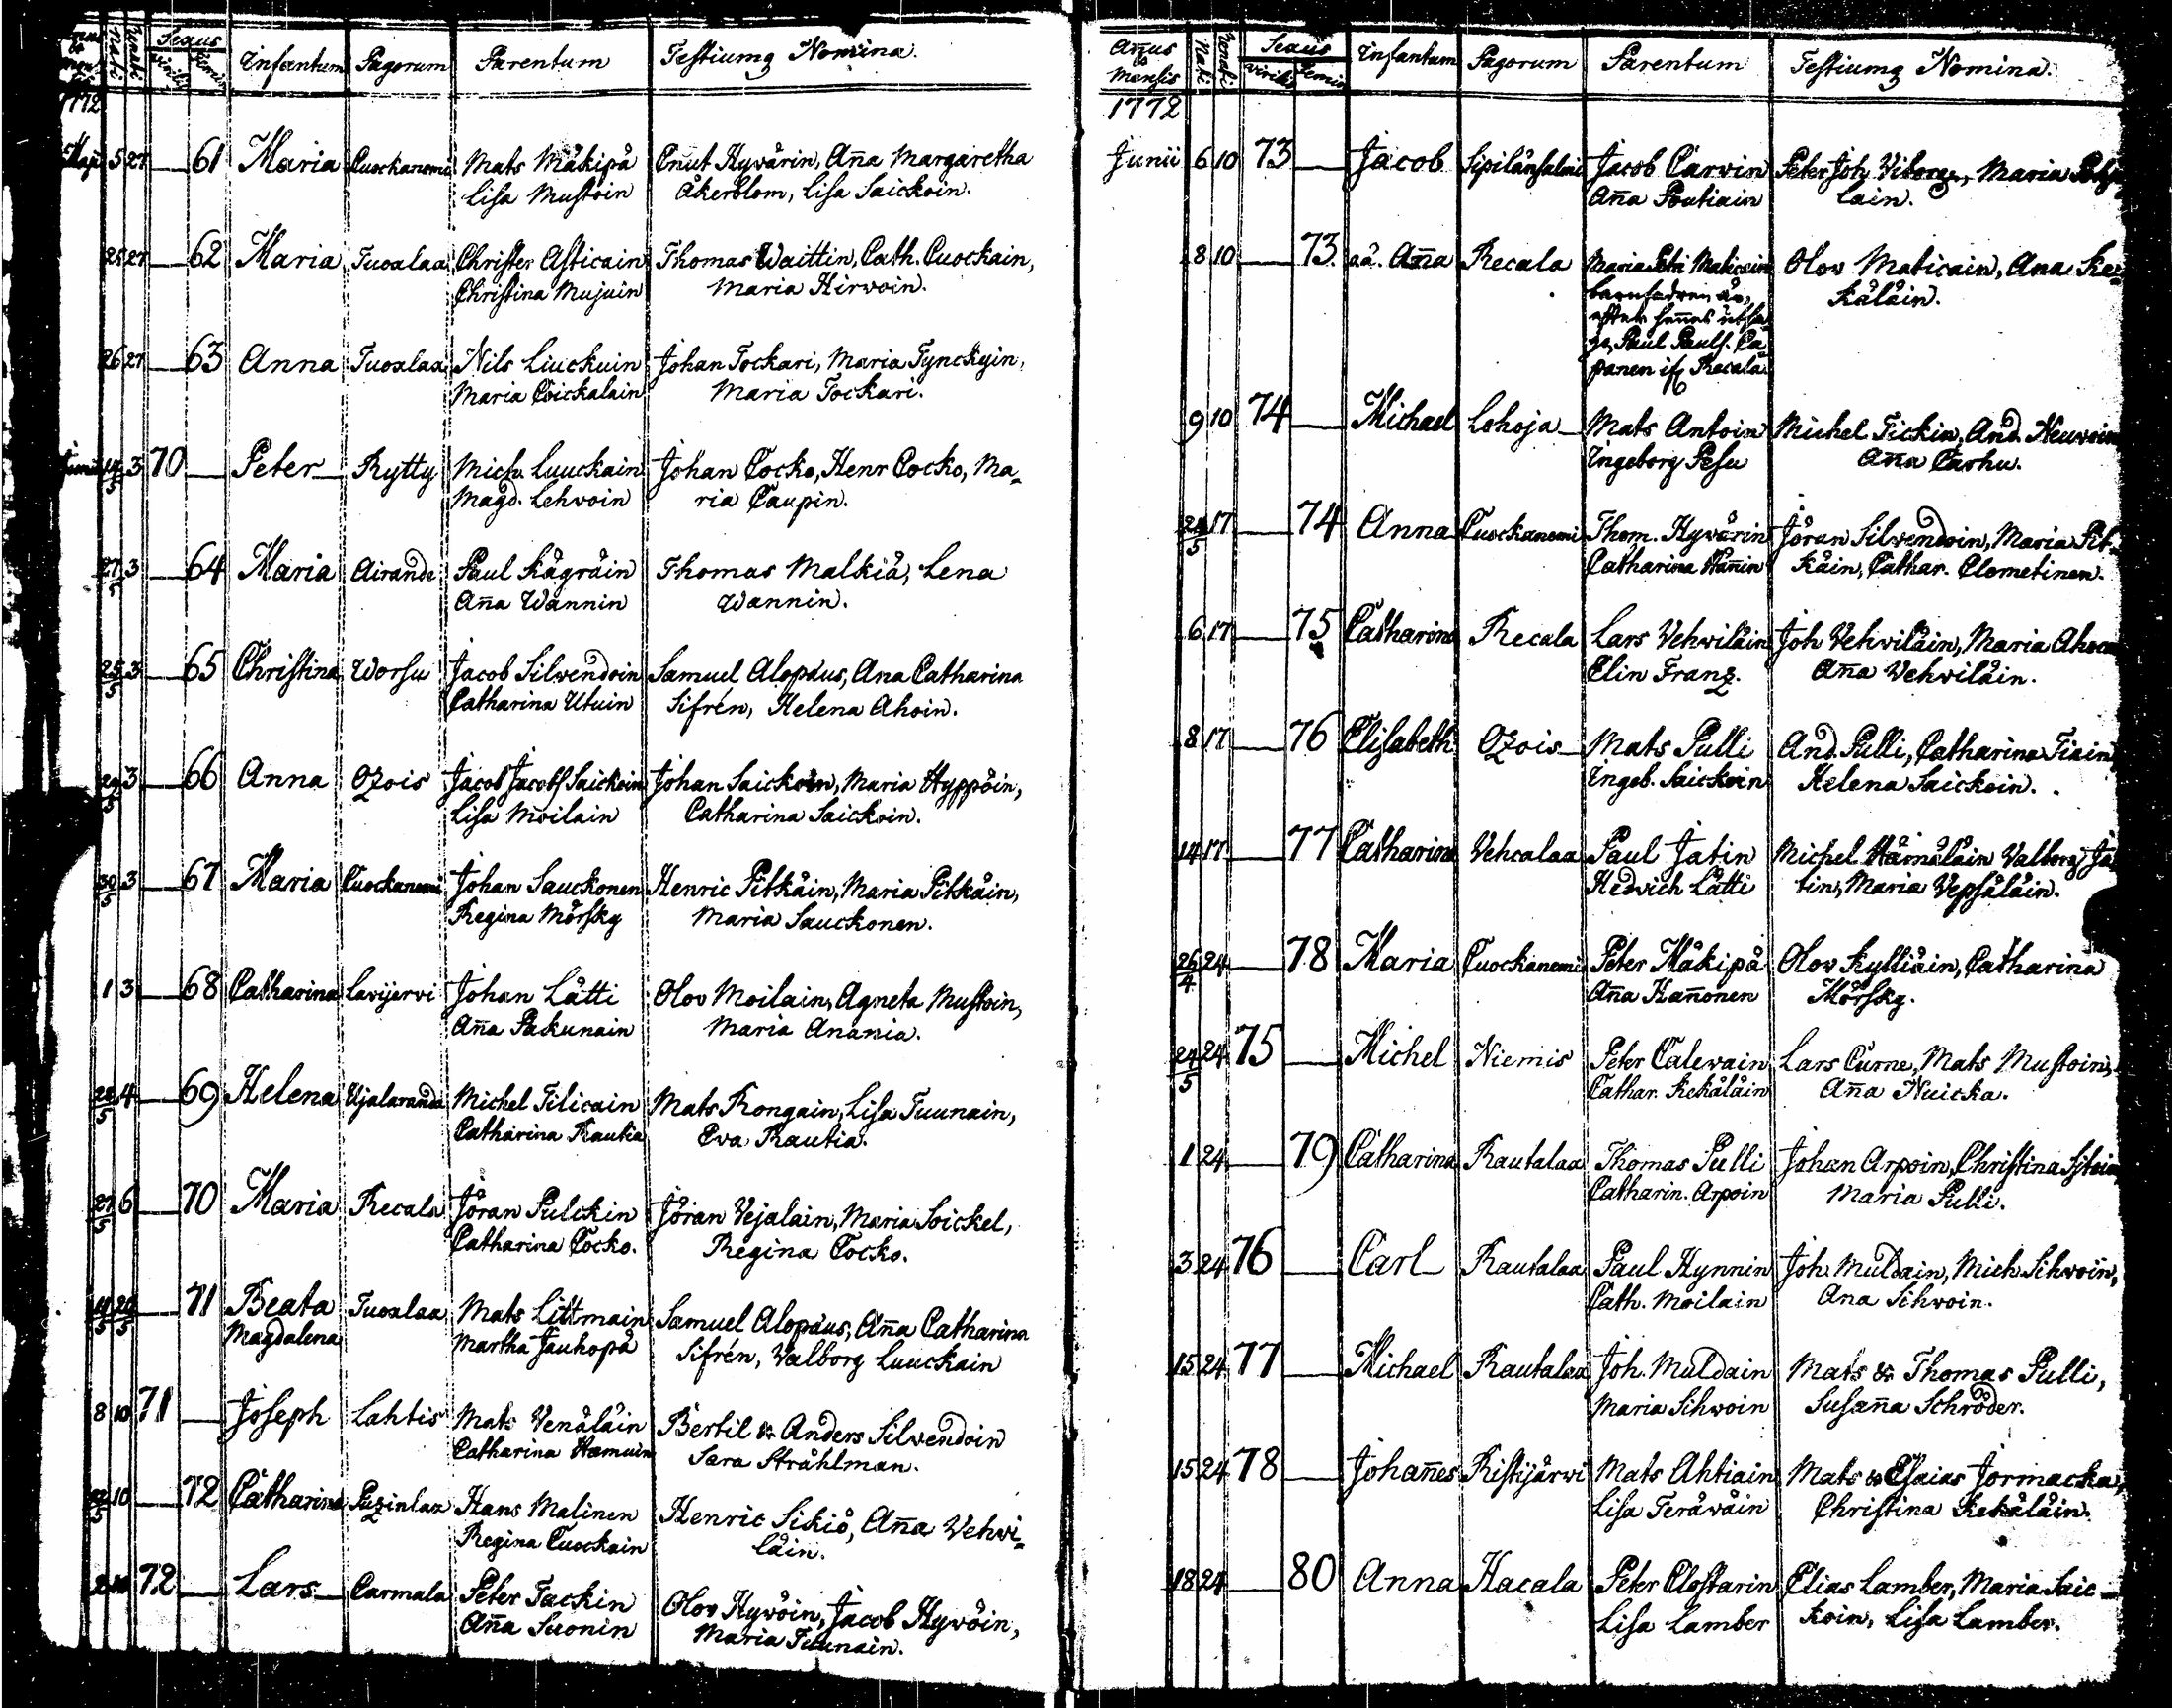 Sexus
Nati Renati virilis femin Infantum Pagorum Parentum Testiumq Nomina.
1772
Maji 5 27 — 61 Maria Cuockanemi Mats Mäkipä Cnut Hyvärin, Aña Margaretha
Lisa Mustoin Åkerblom, Lisa Saickoin.
25 27 — 62 Maria Tuoxlaa Christer Asticain Thomas Waittin, Cath. Cuockain,
Christina Mujuin Maria Hirwoin.
26 27 — 63 Anna Tuoxlax Nils Liuckuin Johan Tockari, Maria Tynckyin,
Maria Coickalain Maria Tockari.
Junii 14/5 3 70 — Peter Rytty Mich. Luuckain Johan Cocko, Henr Cocko, Ma-
Magd. Lehvoin ria Caupin.
27/5 3 — 64 Maria Airande Paul Kägräin Thomas Malkiä, Lena
Aña Wannin Wannin.
25/5 3 — 65 Christina Worsu Jacob Silvendoin Samuel Alopæus, Ana Catharina
Catharina Utuin Sifrén, Helena Ahoin.
29/5 3 — 66 Anna Ozois Jacob Jacobs Saickoin Johan Saickoin, Maria Hyppöin,
Lisa Moilain Catharina Saickoin.
30/5 3 — 67 Maria Cuockanemi Johan Sauckonen Henric Pitkäin, Maria Pitkäin,
Regina Mörsky Maria Sauckonen.
1 3 — 68 Catharina Lavijervi Johan Lätti Olov Moilain, Agneta Mustoin,
Aña Pakunain Maria Anania.
28/5 4 — 69 Helena Ujalaranda Michel Tilicain Mats Rongain, Lisa Tuunain,
Catharina Rautia Eva Rautia.
27/5 6 — 70 Maria Recala Jöran Pulckin Jöran Vejalain, Maria Soickel,
Catharina Cocko. Regina Cocko.
— 71 Beata Tuoxlaa Mats Littmain Samuel Alopæus, Aña Catharina
Magdalena Martha Jauhopä Sifrén, Valborg Luuckain
8 10 71 — Joseph Lahtis Mats Venäläin Bertil & Anders Silvendoin
Catharina Hamuin Sara Stråhlman.
10 — 72 Catharina Puzinlax Hans Malinen Henric Sikiö, Aña Vehvi-
Regina Cuockain läin.
72 — Lars Carmala Peter Tackin Olov Hywöin, Jacob Hywöin,
Aña Suonin Maria Tuunain.
Añus & Mensis Nati Renati Sexus virilis femin Infantum Pagorum Parentum Testiumq Nomina.
1772
Junii 6 10 73 — Jacob Sipilänsalmi Jacob Carvin Peter Joh Viborg, Maria
Aña Poutiain lain.
8 10 — 73. o.ä. Aña Recala Maria Petri Maticain Olov Maticain, Ana Ke-
barnfadren är, käläin.
efter hennes utsa-
go, Paul Pauls. Ca-
panen if. Recala
9 10 74 — Michael Lohoja Mats Antoin Michel Tickin, And. Neuvoin
Ingeborg Pesu Aña Carhu.
17 — 74 Anna Cuockanemi Thom. Hyvärin Jöran Silvendoin, Maria Pit-
Catharina Hañin käin, Cathar. Clometinen.
6 17 — 75 Catharina Recala Lars Vehviläin Joh Vehviläin, Maria
Elin Franz. Aña Vehviläin.
8 17 — 76 Elisabeth Ozois Mats Pulli And. Pulli, Catharina Tiain
Ingeb. Saickoin Helena Saickoin.
14 17 — 77 Catharina Vehcalaa Paul Jatin Michel Hämäläin Valborg Ja-
Hedvich Lätti tin, Maria Vepsäläin.
26/4 24 — 78 Maria Cuockanemi Peter Mäkipä Olov Kylliäin, Catharina
Aña Hañonen Mörsky.
24/5 24 75 — Michel Niemis Peter Calevain Lars Curne, Mats Mustoin,
Cathar. Kekäläin Aña Nuicka.
1 24 — 79 Catharina Rautalaa Thomas Pulli Johan Arpoin, Christina
Catharin. Arpoin Maria Pulli.
3 24 76 — Carl Rautalaa Paul Hynnin Joh. Muldain, Mich Sihvoin,
Cath. Moilain Ana Sihvoin.
15 24 77 — Michael Rautalaa Joh. Muldain Mats & Thomas Pulli,
Maria Sihvoin Susaña Schröder.
15 24 78 — Johañes Ristijärvi Mats Ahtiain Mats & Esaias Jormacka,
Lisa Teräväin Christina Kekäläin.
18 24 — 80 Anna Hacala Peter Clostarin Elias Lamber, Maria Saic-
Lisa Lamber koin, Lisa Lamber.